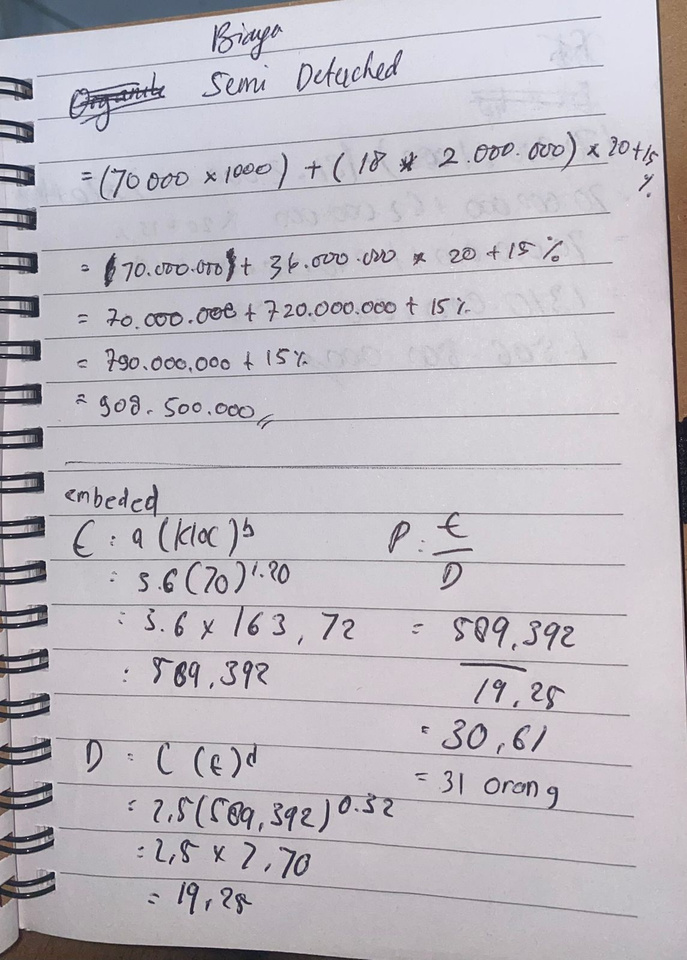 Biaya
Organik Semi Detached
= (70 000 x 1000) + ( 18 * 2.000.000) x 20 + 15 %
= (70.000.000) + 36.000.000 * 20 + 15 %
= 70.000.000 + 720.000.000 + 15 %
= 790.000.000 + 15 %
= 908.500.000
embeded
E : a (kloc)^b
= 3.6 (70)^1.20
: 3.6 x 163,72
: 589,392
P : E / D
= 589,392 / 19,25
= 30,61
= 31 orang
D = C (E)^d
= 2,5 (589,392)^0.32
= 2,5 x 7,70
= 19,25